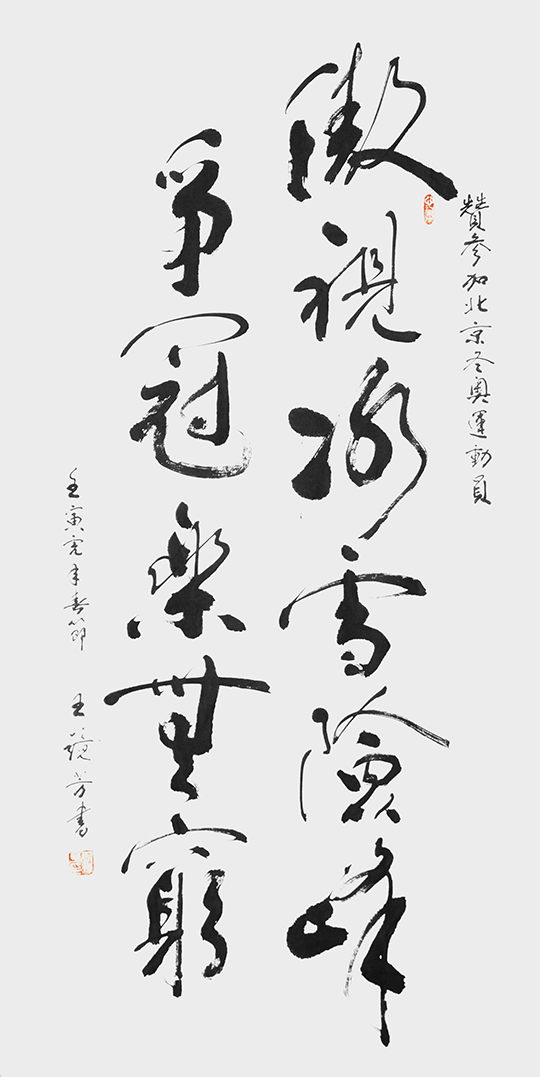 贊參加北京冬奧運動員
傲視冰雪險峰
爭冠樂無窮
壬寅虎年春節 王 芳書